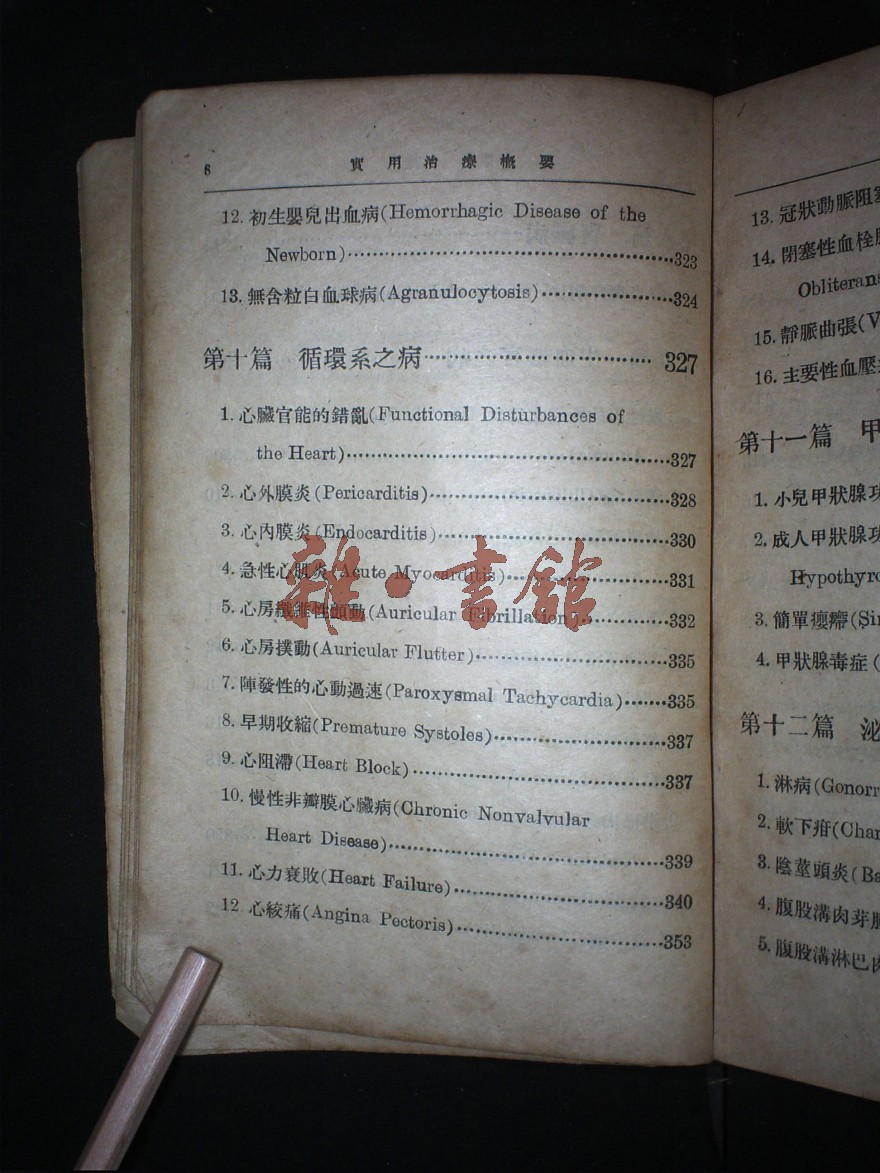 6 實用治療概要
12. 初生嬰兒出血病(Hemorrhagic Disease of the
Newborn)··········323
13. 無含粒白血球病(Agranulocytosis)··········324
第十篇 循環系之病··········327
1. 心臟官能的錯亂(Functional Disturbances of
the Heart)··········327
2. 心外膜炎(Pericarditis)··········328
3. 心內膜炎(Endocarditis)··········330
4. 急性心肌炎(Acute Myocarditis)··········331
5. 心房纖維性顫動(Auricular Fibrillation)··········332
6. 心房撲動(Auricular Flutter)··········335
7. 陣發性的心動過速(Paroxysmal Tachycardia)·······335
8. 早期收縮(Premature Systoles)··········337
9. 心阻滯(Heart Block)··········337
10. 慢性非瓣膜心臟病(Chronic Nonvalvular
Heart Disease)··········339
11. 心力衰敗(Heart Failure)··········340
12 心絞痛(Angina Pectoris)··········353
雜·書館
13. 冠狀動脈阻
14. 閉塞性血栓
Obliterans
15. 靜脈曲張(V
16. 主要性血壓
第十一篇 甲
1. 小兒甲狀腺功
2. 成人甲狀腺功
Hypothyro
3. 簡單癭癤(Sim
4. 甲狀腺毒症(
第十二篇 泌
1. 淋病(Gonorr
2. 軟下疳(Chan
3. 陰莖頭炎(Ba
4. 腹股溝肉芽腫
5. 腹股溝淋巴肉